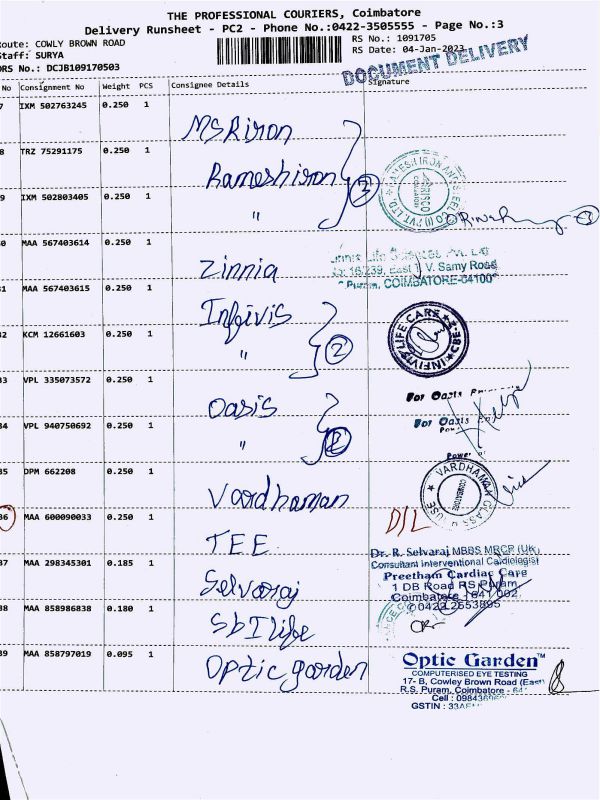 THE PROFESSIONAL COURIERS, Coimbatore
Delivery Runsheet - PC2 - Phone No.:0422-3505555 - Page No.:3
Route: COWLY BROWN ROAD
RS No.: 1091705
Staff: SURYA
RS Date: 04-Jan-2023
DRS No.: DCJB109170503
DOCUMENT DELIVERY
No Consignment No Weight PCS Consignee Details Signature
7 IXM 502763245 0.250 1
MS Riron
8 TRZ 75291175 0.250 1
Rameshiron
3
9 IXM 502803405 0.250 1
"
0 MAA 567403614 0.250 1
Zinnia
Life Sciences Pvt. Ltd
16/239, East T.V. Samy Road
Puram, COIMBATORE-64100
1 MAA 567403615 0.250 1
Infivis
INFIVIS LIFE CARE CBE
32 KCM 12661603 0.250 1
"
2
33 VPL 335073572 0.250 1
Oasis
For Oasis
34 VPL 940750692 0.250 1
"
2
For Oasis
Power
35 DPM 662208 0.250 1
Vardhaman
VARDHAMAN GLASS HOUSE
COIMBATORE
36 MAA 600090033 0.250 1
TEE
D/L
37 MAA 298345301 0.185 1
Selvaraj
Dr. R. Selvaraj MBBS MRCP (UK)
Consultant Interventional Cardiologist
Preetham Cardiac Care
1 DB Road RS Puram,
Coimbatore - 641 002.
✆0422 2653895
38 MAA 858986838 0.180 1
SbI life
39 MAA 858797019 0.095 1
Optic garden
Optic Garden™
COMPUTERISED EYE TESTING
17- B, Cowley Brown Road (East)
R.S. Puram, Coimbatore - 64
Cell : 098436
GSTIN : 33A